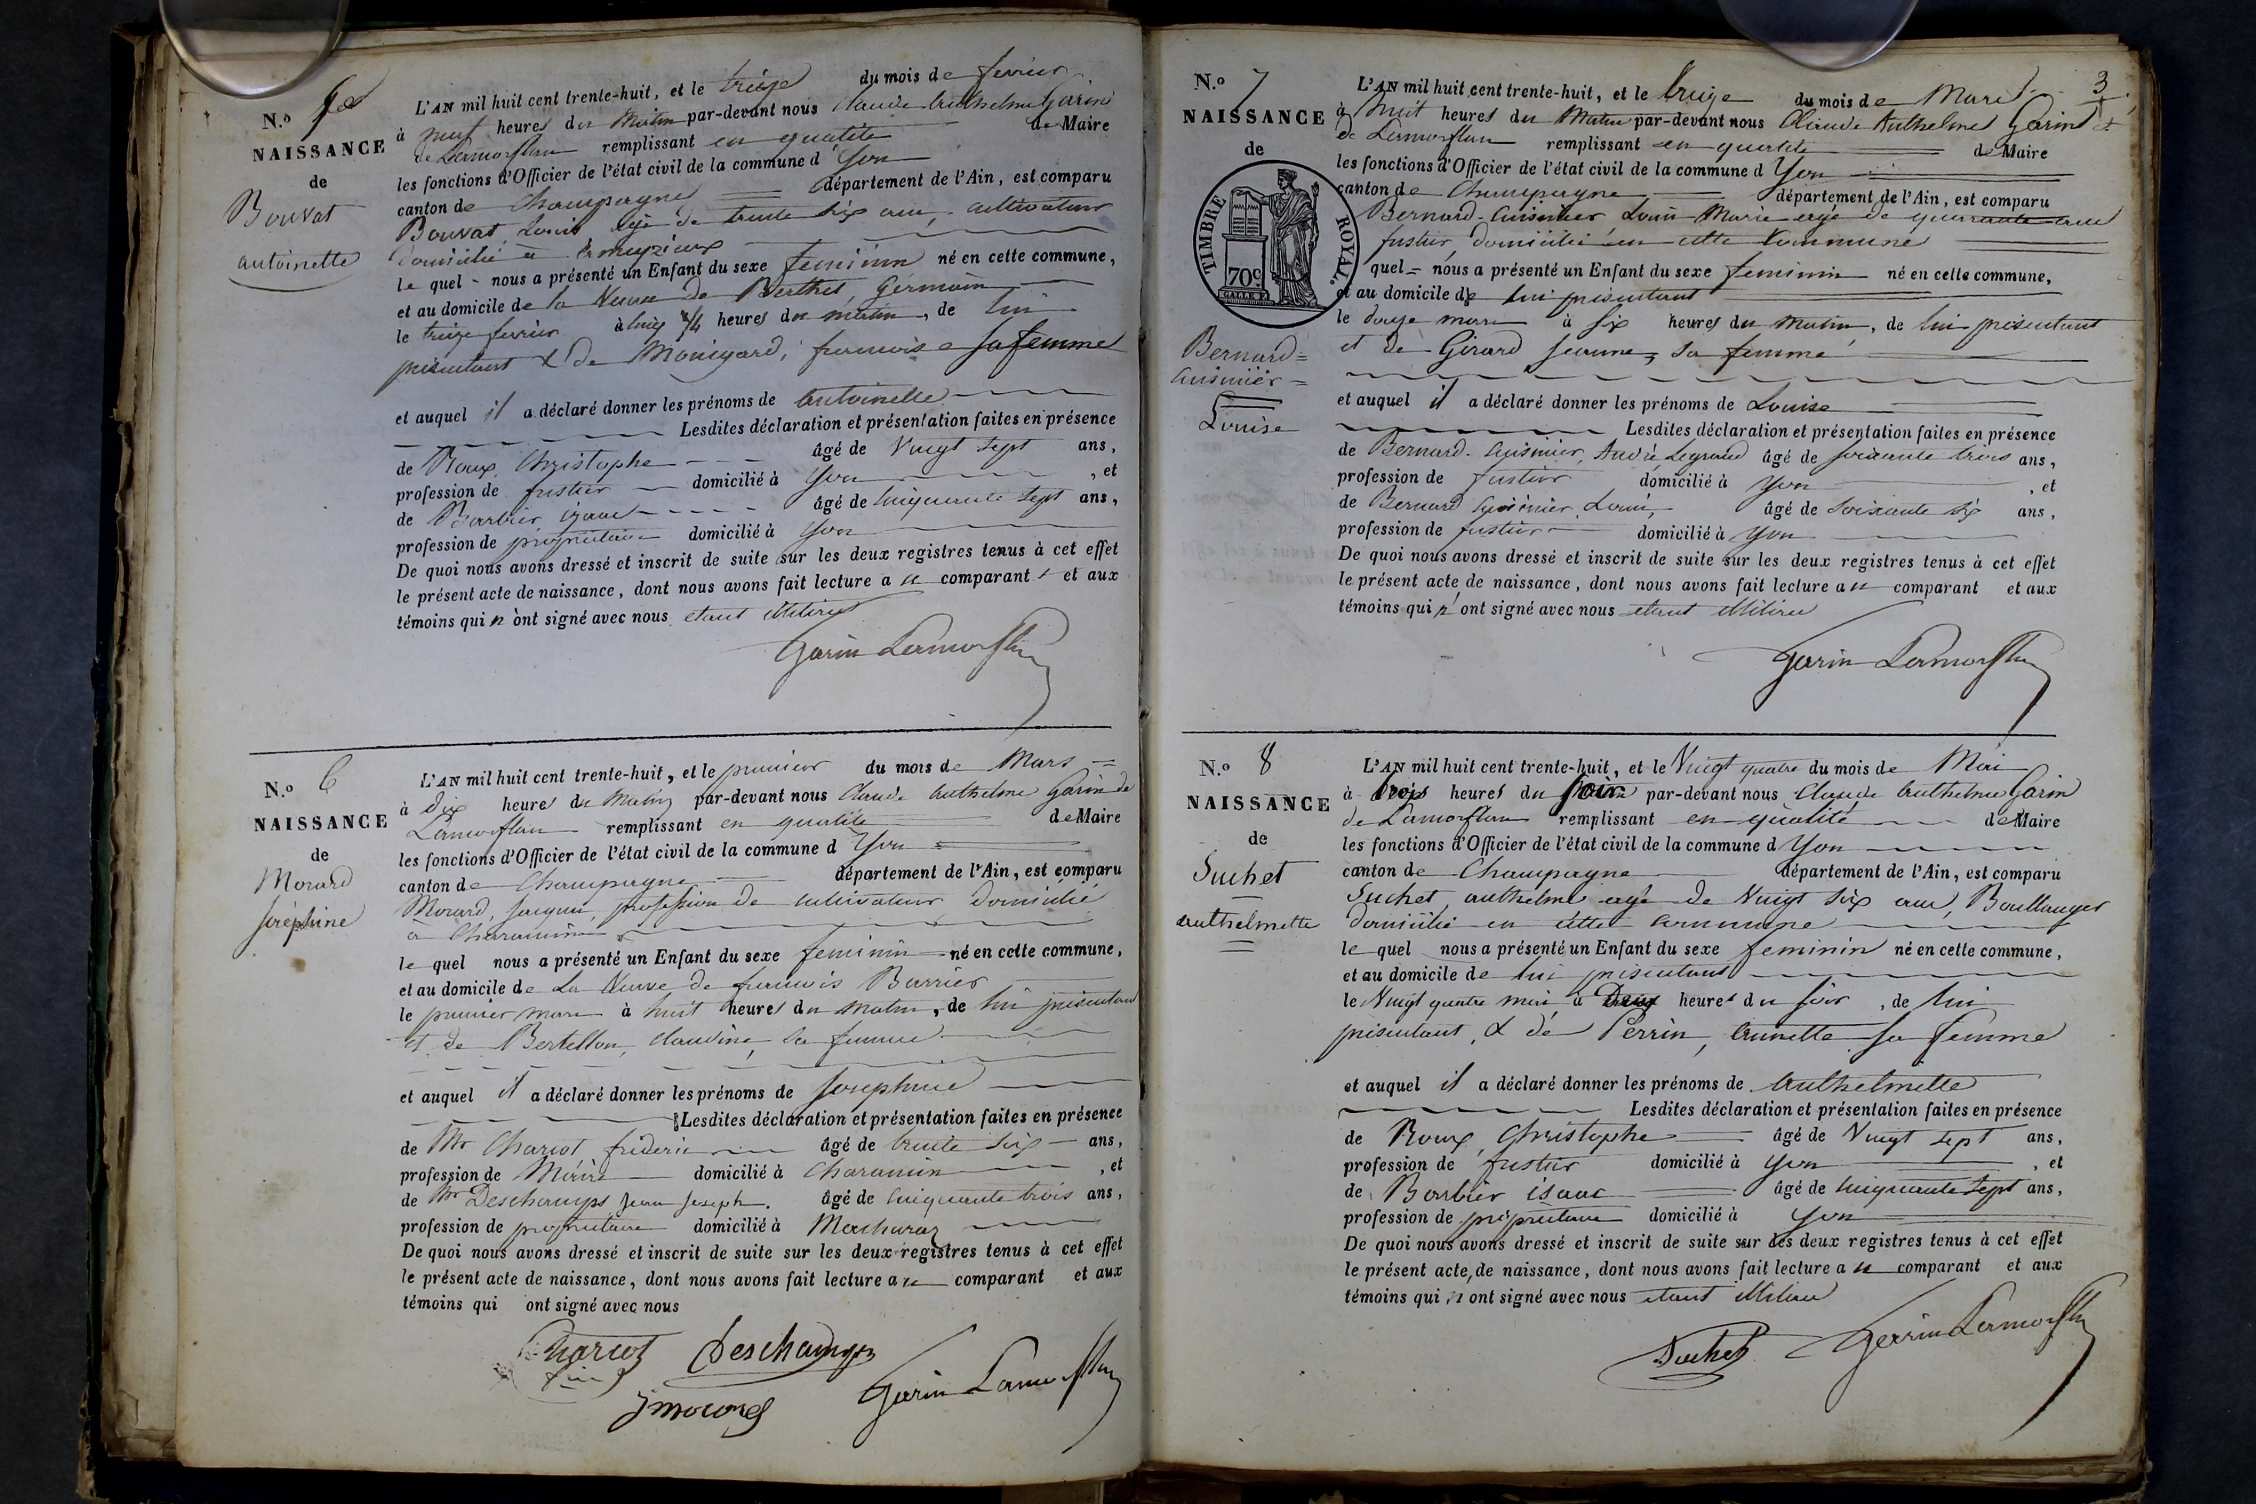 N.o 5
NAISSANCE
de
Bouvat
antoinette
L'AN mil huit cent trente-huit, et le treize du mois de fevrier
à neuf heures du Matin par-devant nous Claude Anthelme Garin
de Lamorflan remplissant en qualité de Maire
les fonctions d'Officier de l'état civil de la commune d'Yon
canton de Champagne département de l'Ain, est comparu
Bouvat Louis, agé de trente six ans, cultivateur
domicilié à
le quel nous a présenté un Enfant du sexe feminin né en cette commune,
et au domicile de la Veuve de Berthet Germain
le treize fevrier à heures du matin, de lui
présentant & de Monigard, francoise sa femme
et auquel il a déclaré donner les prénoms de Antoinette
Lesdites déclaration et présentation faites en présence
de Roux, Christophe âgé de Vingt sept ans,
profession de fustier domicilié à Yon, et
de Barbier izaac âgé de cinquante sept ans,
profession de propriétaire domicilié à Yon
De quoi nous avons dressé et inscrit de suite sur les deux registres tenus à cet effet
le présent acte de naissance, dont nous avons fait lecture au comparant et aux
témoins qui n'ont signé avec nous étant illitéré
Garin Lamorflan
N.o 6
NAISSANCE
de
Morard
joséphine
L'AN mil huit cent trente-huit, et le premier du mois de Mars
à dix heures du Matin par-devant nous Claude Anthelme Garin de
Lamorflan remplissant en qualité de Maire
les fonctions d'Officier de l'état civil de la commune d Yon
canton de Champagne département de l'Ain, est comparu
Morard, Jacques, profession de cultivateur domicilié
à Charamin
le quel nous a présenté un Enfant du sexe feminin né en cette commune,
et au domicile de La Veuve de francois Barrier
le premier mars à huit heures du matin, de lui présentant
et de Bertellon, claudine, sa femme
et auquel il a déclaré donner les prénoms de Josephine
Lesdites déclaration et présentation faites en présence
de Mr Charcot frideric âgé de trente six ans,
profession de domicilié à Charamin, et
de Mr Deschamps Jean Joseph. âgé de cinquante trois ans,
profession de propriétaire domicilié à Machuraz
De quoi nous avons dressé et inscrit de suite sur les deux registres tenus à cet effet
le présent acte de naissance, dont nous avons fait lecture au comparant et aux
témoins qui ont signé avec nous
Charcot Deschamps
J morard Garin Lamorflan
3
N.o 7
NAISSANCE
de
TIMBRE ROYAL.
70c
Bernard=
Cuisinier=
Louise
L'AN mil huit cent trente-huit, et le treize du mois de Mars
à huit heures du Matin par-devant nous Claude Anthelme Garin
de Lamorflan remplissant en qualité de Maire
les fonctions d'Officier de l'état civil de la commune d Yon
canton de Champagne département de l'Ain, est comparu
Bernard-Cuisinier, Louis Marie agé de quarante ans
fustier, domicilié en cette Commune
quel nous a présenté un Enfant du sexe feminin né en cette commune,
et au domicile de lui présentant
le douze mars à six heures du matin, de lui présentant
et de Girard Jeanne, sa femme
et auquel il a déclaré donner les prénoms de Louise
Lesdites déclaration et présentation faites en présence
de Bernard-Cuisinier, André Legrand âgé de soixante trois ans,
profession de fustier domicilié à Yon, et
de Bernard Cuisinier, Louis, âgé de soixante six ans,
profession de fustier domicilié à Yon
De quoi nous avons dressé et inscrit de suite sur les deux registres tenus à cet effet
le présent acte de naissance, dont nous avons fait lecture au comparant et aux
témoins qui n'ont signé avec nous étant illitéré
Garin Lamorflan
N.o 8
NAISSANCE
de
Suchet
anthelmette
L'AN mil huit cent trente-huit, et le Vingt quatre du mois de Mai
à trois heures du soir par-devant nous Claude Anthelme Garin
de Lamorflan remplissant en qualité de Maire
les fonctions d'Officier de l'état civil de la commune d Yon
canton de Champagne département de l'Ain, est comparu
Suchet, anthelme agé de Vingt six ans, Boullanger
domicilié en cette commune
le quel nous a présenté un Enfant du sexe feminin né en cette commune,
et au domicile de lui présentant
le Vingt quatre mai, à Deux heures du soir, de lui
présentant, & de Perrin, sa femme
et auquel il a déclaré donner les prénoms de Anthelmette
Lesdites déclaration et présentation faites en présence
de Roux, Christophe âgé de Vingt sept ans,
profession de fustier domicilié à Yon, et
de Barbier isaac âgé de cinquante sept ans,
profession de propriétaire domicilié à Yon
De quoi nous avons dressé et inscrit de suite sur les deux registres tenus à cet effet
le présent acte de naissance, dont nous avons fait lecture au comparant et aux
témoins qui n ont signé avec nous étant illitéré
Suchet Garin Lamorflan